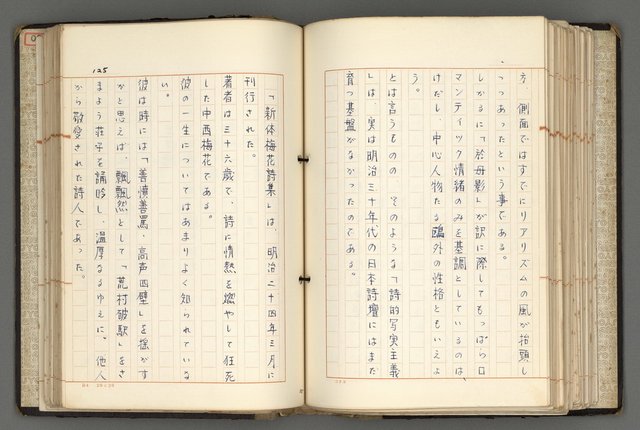 方、側面ではすでにリアリズムの風が抬頭し
つつあったという事である。
しかるに「於母影」が訳に際してもっぱらロ
マンティック情緒のみを基調としているのは、
けだし、中心人物たる鴎外の性格ともいえよ
う。
とは言うものの そのような「詩的写実主義
」は、実は明治三十年代の日本詩壇にはまだ
育つ基盤がなかったのである。
125
「新体梅花詩集」は、明治二十四年三月に
刊行された。
著者は三十六歳で、詩に情熱を燃やして狂死
した中西梅花である。
彼の一生についてはあまりよく知られている
い。
彼は時には「善憤善罵、高声四壁」を揺がす
かと思えば、飄飄然として「荒村破駅」をさ
まよう荘子を誦吟し、温厚なるゆえに。他人
から敬愛された詩人であった。